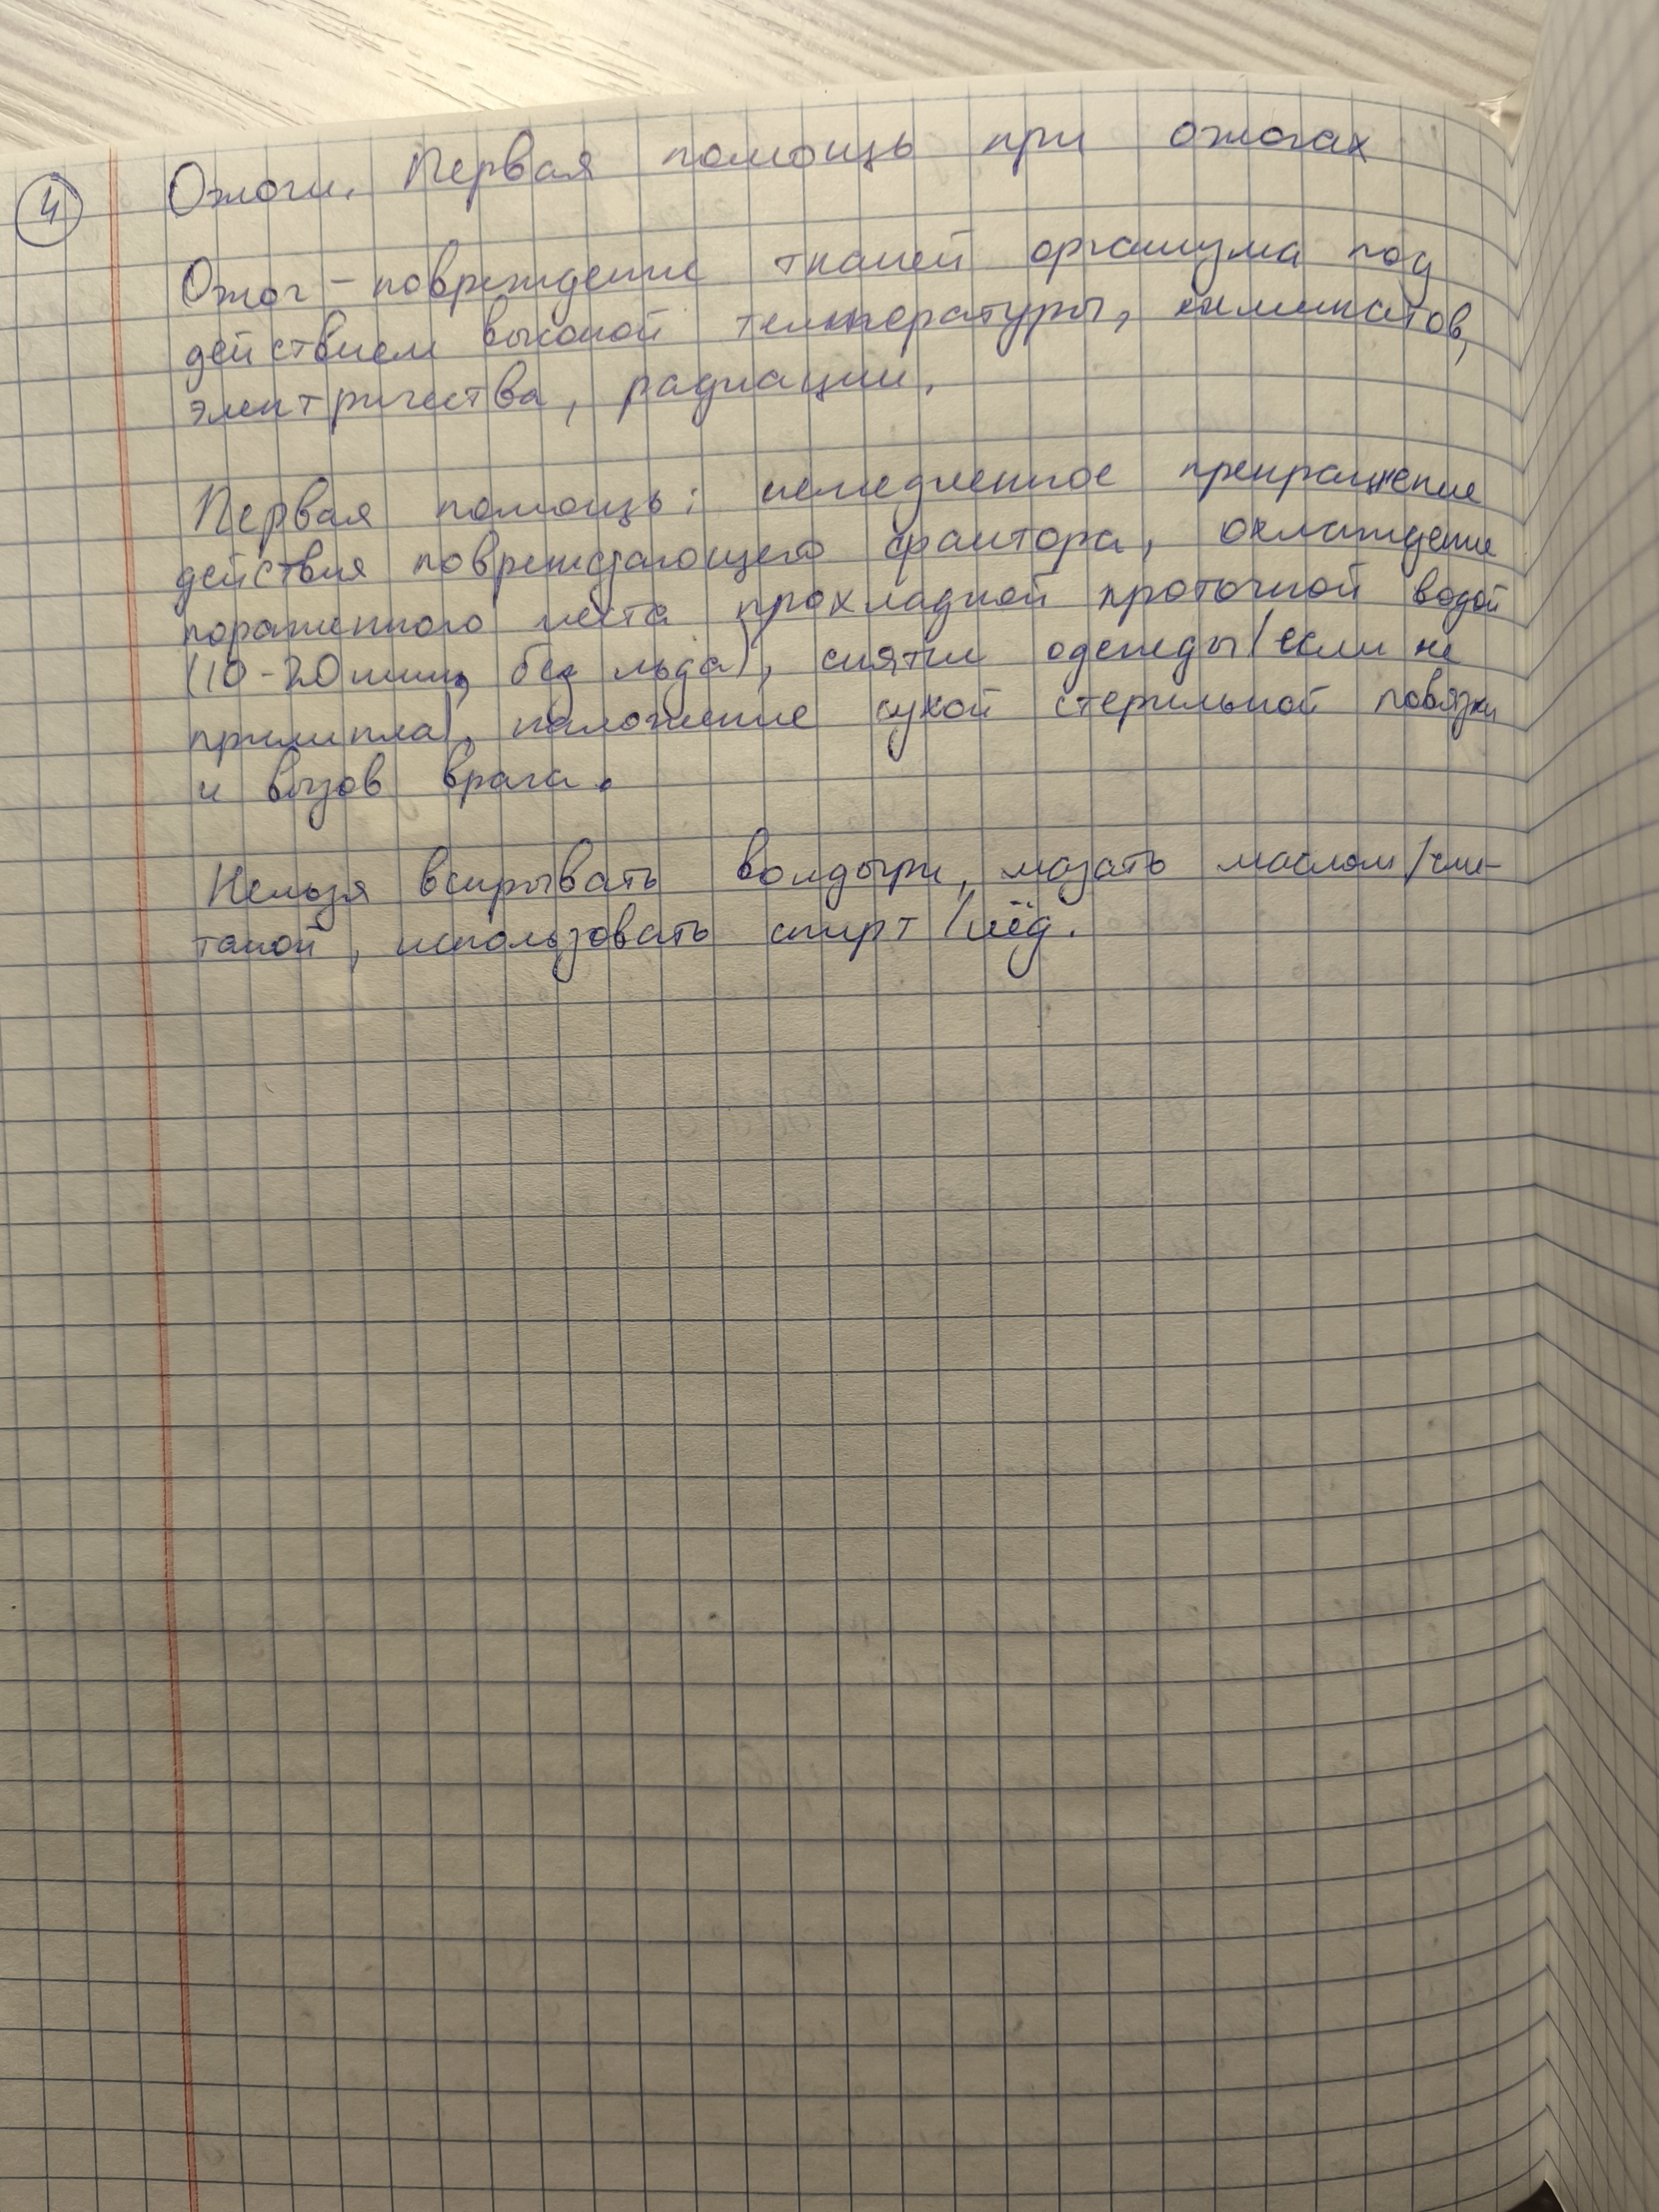 4 Ожоги. Первая помощь при ожогах
Ожог - повреждение тканей организма под
действием высокой температуры, химикатов,
электричества, радиации.
Первая помощь: немедленное прекращение
действия повреждающего фактора, охлаждение
пораженного места прохладной проточной водой
(10-20 мин, без льда), снятие одежды (если не
прилипла), наложение сухой стерильной повязки
и вызов врача.
Нельзя вскрывать волдыри, мазать маслом/сме-
таной, использовать спирт/лёд.